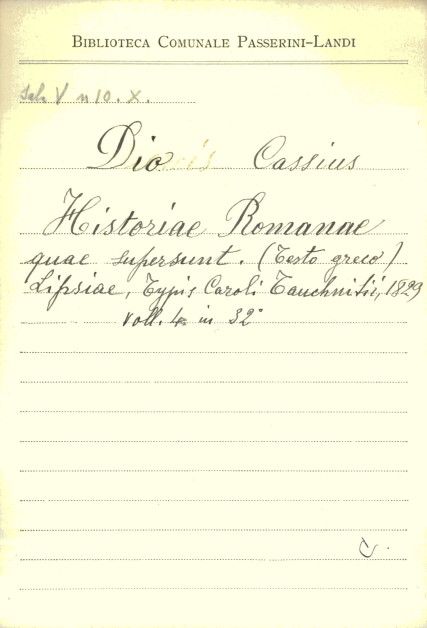 BIBLIOTECA COMUNALE PASSERINI-LANDI
Sch V n 10. X.
Dio Cassius
Historiae Romanae
quae supersunt. (Testo greco)
Lipsiae, Typis Caroli Tauchnitii, 1829
Voll. 4 in 32°